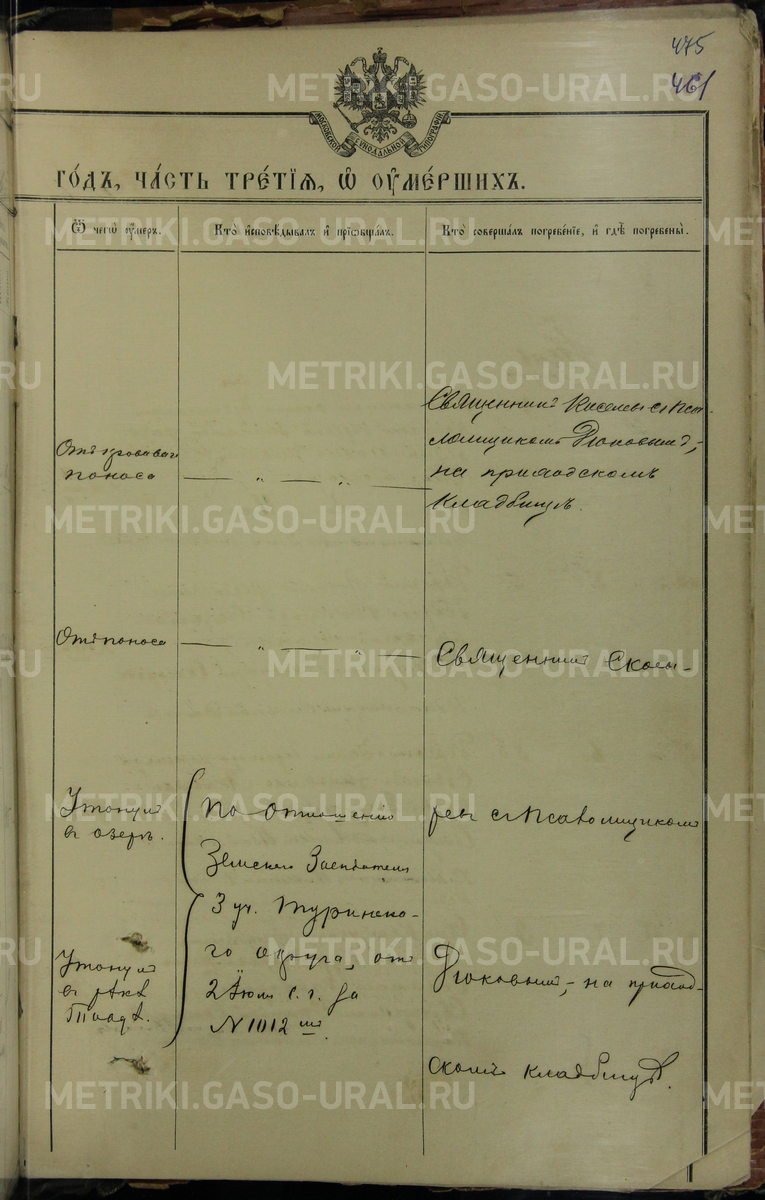 475
461
МОСКОВСКОЙ СѴНОДАЛЬНОЙ ТИПОГРАФІИ
ГО́ДЪ, ЧА́СТЬ ТРЕ́ТІѦ, Ѽ ОУ҆МЕ́РШИХЪ.
Ѿ чегѡ̀ ᲂу҆́меръ.
Кто̀ и҆сповѣ́дывалъ и҆ прїѡбща́лъ.
Кто̀ соверша́лъ погребе́нїе, и҆ гдѣ̀ погребены̀.
Отъ кроваваго
поноса
— „ — „ —
Священникъ с Пса-
ломщикомъ Дюковымъ,-
на приходскомъ
кладбищѣ.
Отъ поноса
— „ — „ —
Священникъ
Утонулъ
въ озерѣ.
По отношенію
Земскаго Засѣдателя
3 уч. Туринска-
го округа, отъ
2 Іюля с. г. за
N 1012 мъ
ревъ съ Псаломщикомъ
Утонулъ
въ рѣкѣ
Дюковымъ,- на приход-
скомъ кладбищѣ.
METRIKI.GASO-URAL.RU